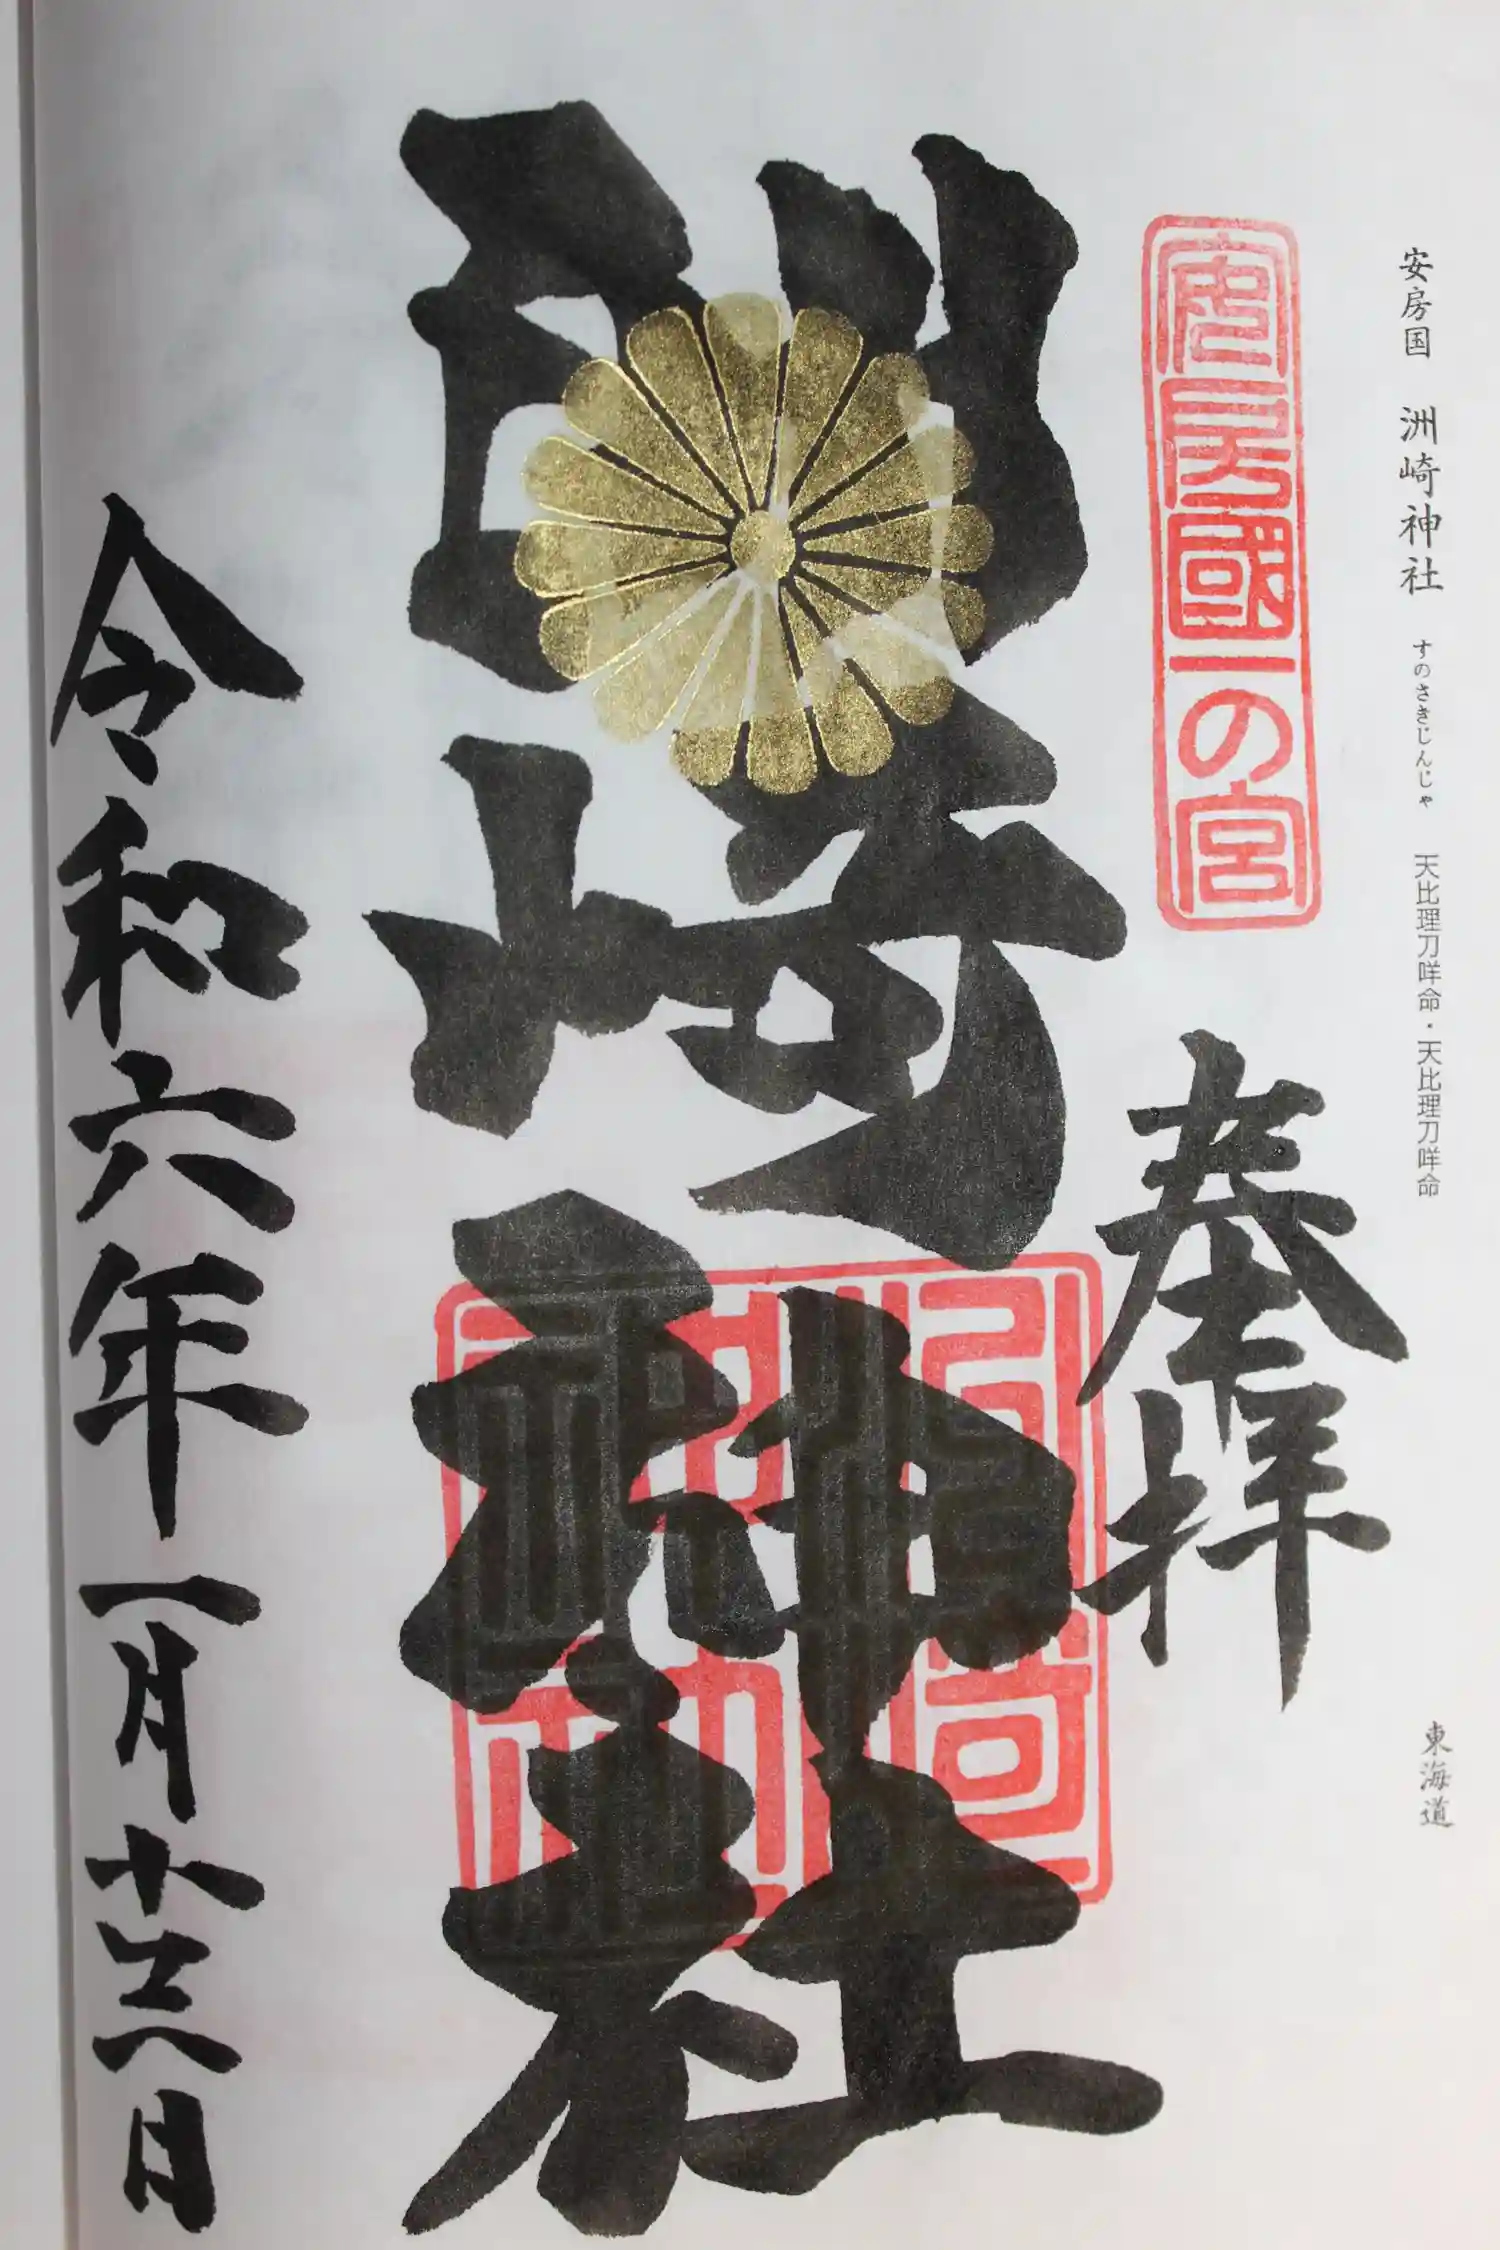 安房国 洲崎神社 すのさきじんじゃ 天比理刀咩命・天比理刀咩命 東海道
安房國一の宮
奉拝
洲崎神社
令和六年一月十 日